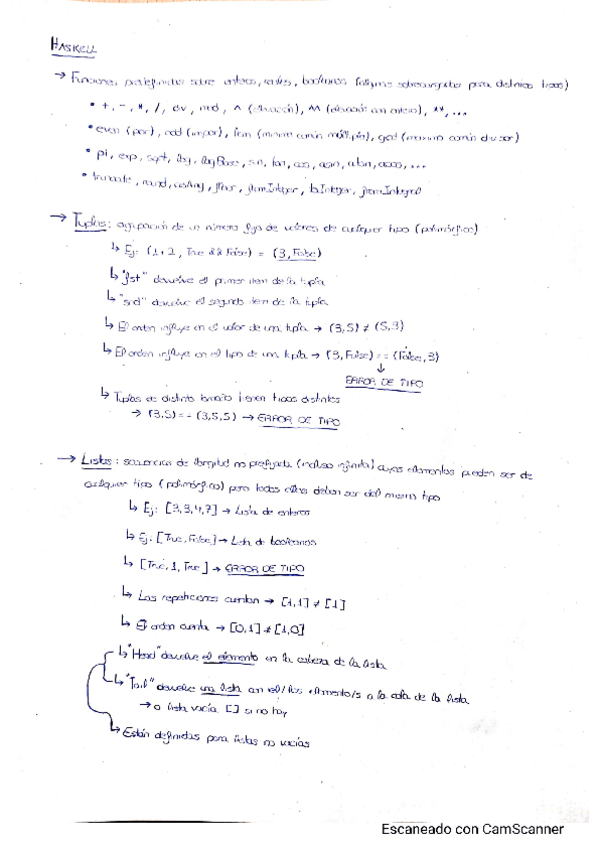 HASKELL
→ Funciones predefinidas sobre enteros, reales, booleanos (algunas sobrecargadas para distintos tipos)
• +, -, *, /, div, mod, ^ (elevación), ^^ (elevación con entero), **, ...
• even (par), odd (impar), lcm (mínimo común múltiplo), gcd (máximo común divisor)
• pi, exp, sqrt, log, logBase, sin, tan, cos, asin, atan, acos, ...
• truncate, round, ceiling, floor, fromInteger, toInteger, fromIntegral
→ Tuplas: agrupación de un número fijo de valores de cualquier tipo (polimórfico)
↳ Ej: (1+2, True && False) = (3, False)
↳ "fst" devuelve el primer item de la tupla
↳ "snd" devuelve el segundo item de la tupla
↳ El orden influye en el valor de una tupla → (3,5) ≠ (5,3)
↳ El orden influye en el tipo de una tupla → (3, False) == (False, 3)
↓
ERROR DE TIPO
↳ Tuplas de distinto tamaño tienen tipos distintos
→ (3,5) == (3,5,5) → ERROR DE TIPO
→ Listas: secuencias de longitud no prefijada (incluso infinita) cuyos elementos pueden ser de
cualquier tipo (polimórfico) pero todos ellos deben ser del mismo tipo
↳ Ej: [3,3,4,7] → Lista de enteros
↳ Ej: [True, False] → Lista de booleanos
↳ [True, 1, True] → ERROR DE TIPO
↳ Las repeticiones cuentan → [1,1] ≠ [1]
↳ El orden cuenta → [0,1] ≠ [1,0]
↳ "Head" devuelve el elemento en la cabeza de la lista
↳ "Tail" devuelve una lista con el/los elemento/s a la cola de la lista
→ o lista vacía [] si no hay
↳ Están definidas para listas no vacías
Escaneado con CamScanner